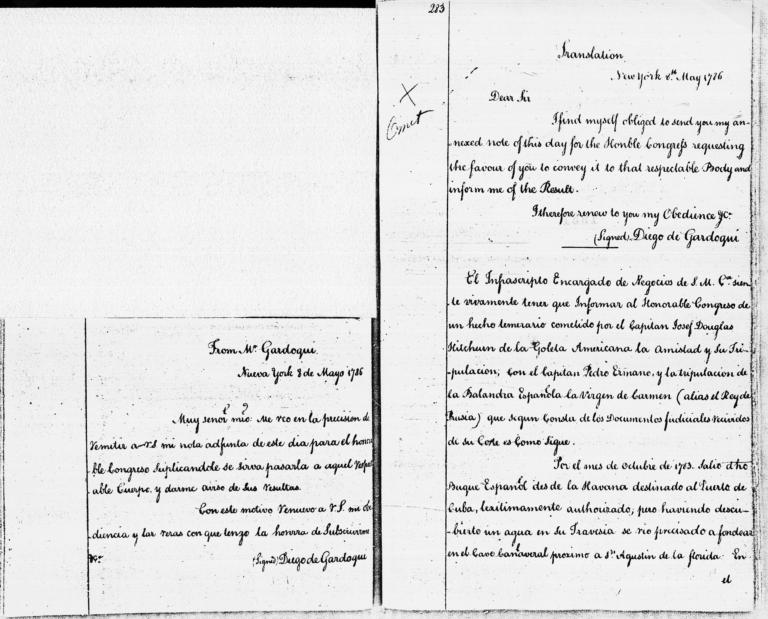 From Mr. Gardoqui.
Nueva York 8 de Mayo 1786
Muy señor mio: Me veo en la precision de
remitir a V.S. mi nota adjunta de este dia para el honra
ble Congreso Suplicandole se sirva pasarla a aquel respet
able Cuerpo, y darme aviso de sus resultas.
Con este motivo renuevo a V.S. mi obe
diencia y las veras con que tengo la honrra de Subscrivirme
&c.
(Signed) Diego de Gardoqui
283
X
Omit
Translation
New York 8th May 1786
Dear Sir
I find myself obliged to send you my an-
nexed note of this day for the Honble Congress requesting
the favour of you to convey it to that respectable Body and
inform me of the Result.
I therefore renew to you my Obedience &c.
(Signed) Diego de Gardoqui
El Infrascripto Encargado de Negocios de S. M. Ca. sien
te vivamente tener que Informar al Honorable Congreso de
un hecho temerario cometido por el Capitan Josef Douglas
Kitchuin de la Goleta Americana la Amistad y Su Tri-
pulacion; con el Capitan Pedro Ermano, y la tripulacion de
la Balandra Española la Virgen de Carmen (alias el Rey de
Rusia) que segun Consta de los Documentos judiciales venidos
de su Corte es Como Sigue.
Por el mes de Octubre de 1783. Salio dho
Buque Español des de la Havana destinado al Puerto de
Cuba, lexitimamente authorizado; pero haviendo descu-
bierto un agua en su Travesia se vio precisado a fondear
en el Cavo Cañaveral proximo a Sn. Agustin de la florida. En
el